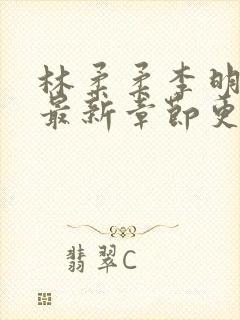 林柔柔李明
最新章节更
翡翠C